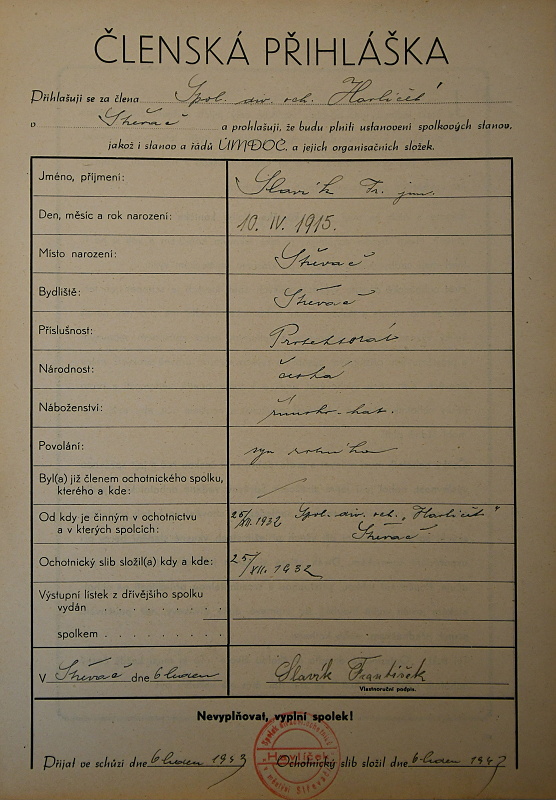 ČLENSKÁ PŘIHLÁŠKA
Přihlašuji se za člena Spol. div. och. Havlíček
v Střevač a prohlašuji, že budu plniti ustanovení spolkových stanov,
jakož i stanov a řádů ÚMDOČ. a jejich organisačních složek.
Jméno, příjmení: Slavík Fr. jun.
Den, měsíc a rok narození: 10. IV. 1915.
Místo narození: Střevač
Bydliště: Střevač
Příslušnost: Protektorát
Národnost: česká
Náboženství: římsko-kat.
Povolání: syn rolníka
Byl(a) již členem ochotnického spolku,
kterého a kde: /
Od kdy je činným v ochotnictvu 25/XII. 1932 Spol. div. och. „Havlíček"
a v kterých spolcích: Střevač
Ochotnický slib složil(a) kdy a kde: 25/XII. 1932
Výstupní lístek z dřívějšího spolku
vydán . . . . . . . .
spolkem . . . . . . . .
V Střevač dne 6 leden Slavík František
Vlastnoruční podpis.
Nevyplňovat, vyplní spolek!
Přijat ve schůzi dne 6 leden 1943 Ochotnický slib složil dne 6 leden 1943
Havlíček